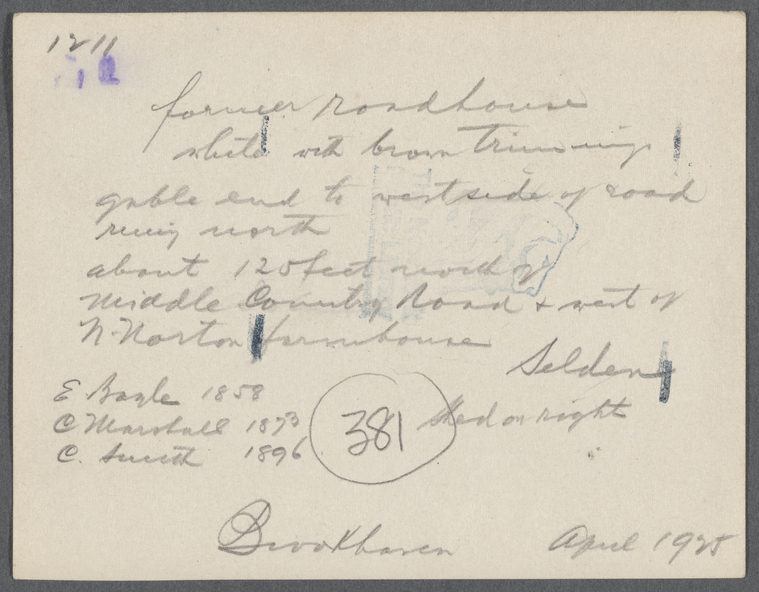 1211
former roadhouse
white with brown trimmings
gable end to west side of road
runing north
about 120 feet north of
Middle Country Road & west of
N. Norton farmhouse
Selden
E Bayle 1858
C Marshall 1873
C. Smith 1896
381
shed on right
Brookhaven April 1925